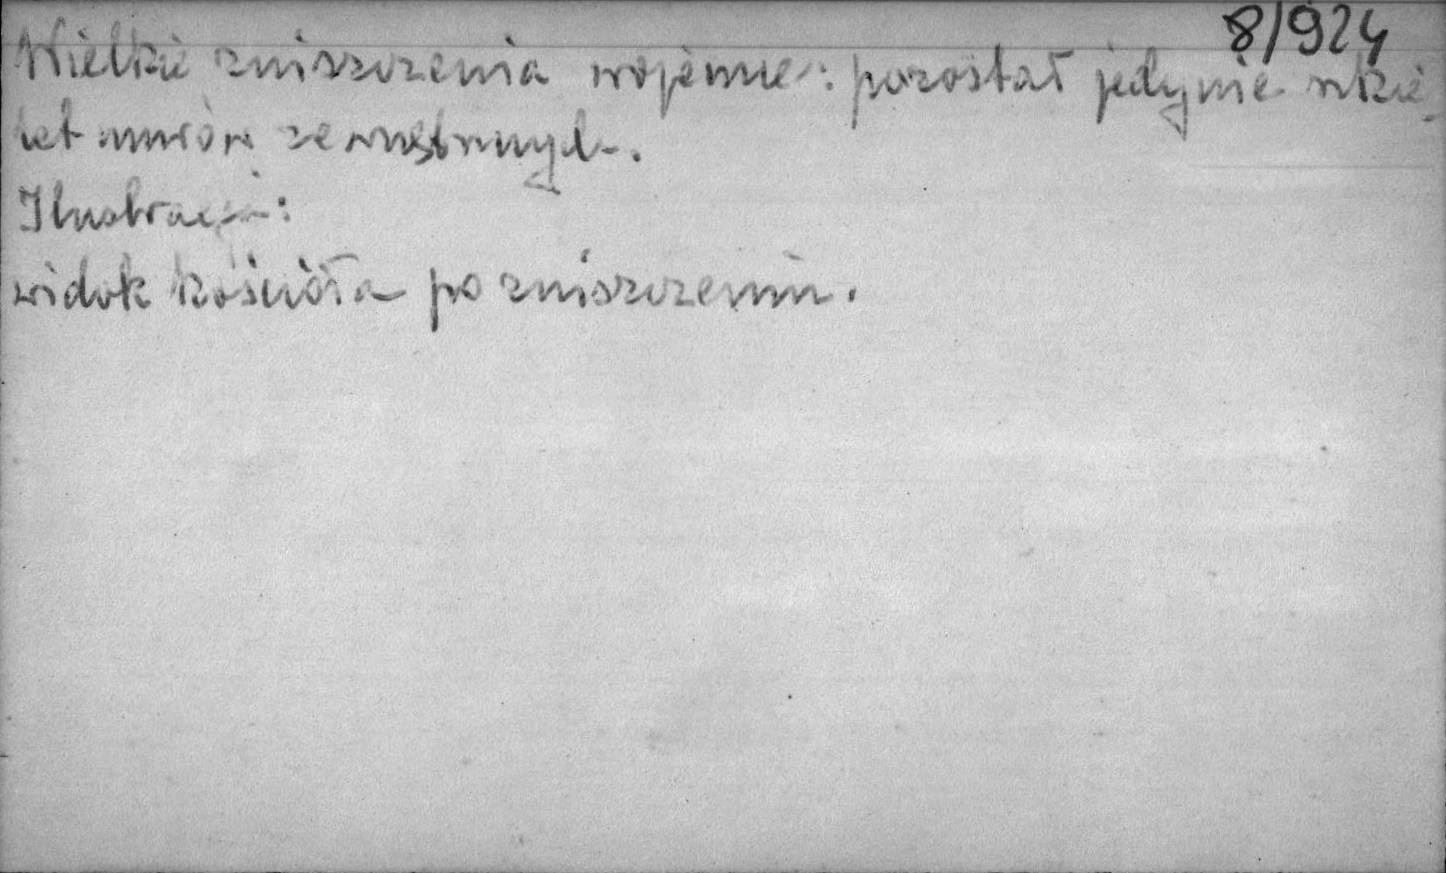 8/924
Wielkie zniszczenia wojenne: pozostał jedynie szkie-
let murów zewnętrznych.
Ilustracja:
widok kościoła po zniszczeniu.